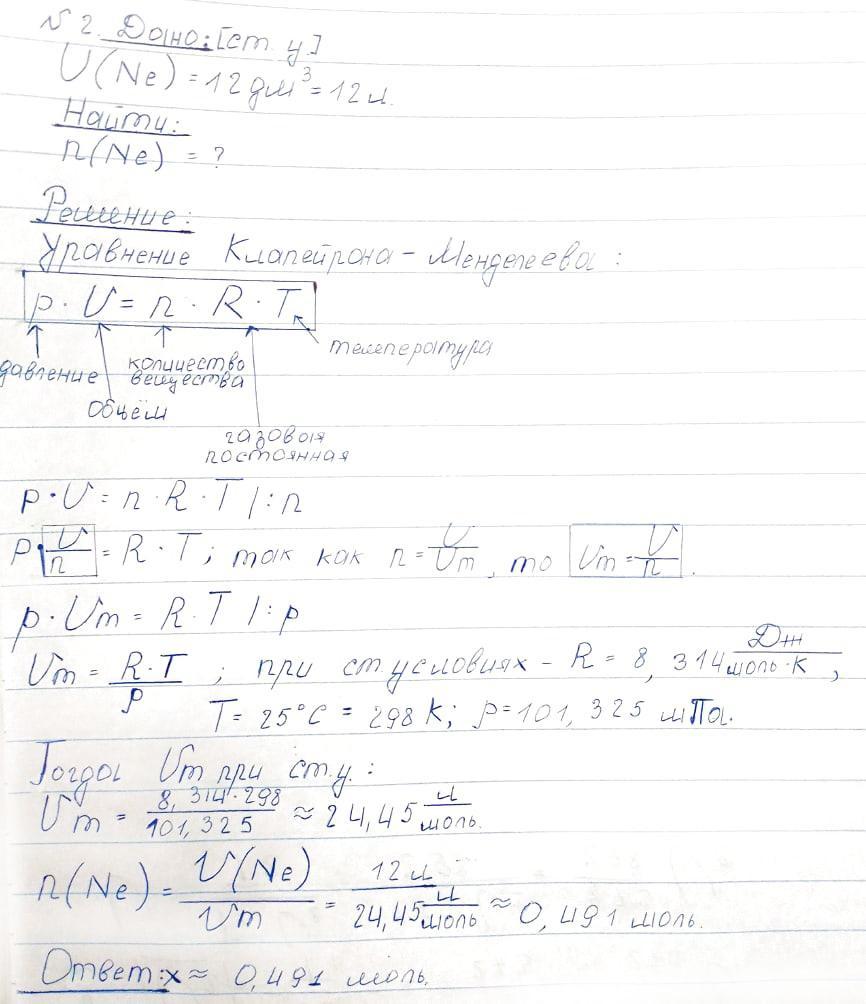 № 2. Дано: [ст. у.]
V(Ne) = 12 дм³ = 12 л.
Найти:
n(Ne) = ?
Решение:
Уравнение Клапейрона - Менделеева:
p · V = n · R · T
температура
давление количество вещества
объём
газовая
постоянная
p · V = n · R · T |: n
p · V/n = R · T; так как n = V/Vm, то Vm = V/n.
p · Vm = R · T |: p
Vm = R·T/p ; при ст условиях - R = 8, 314 Дж/моль·К,
T = 25°C = 298 К; p = 101, 325 мПа.
Тогда Vm при ст.у.:
Vm = 8, 314·298/101, 325 ≈ 24,45 л/моль.
n(Ne) = V(Ne)/Vm = 12 л/24,45 л/моль ≈ 0, 491 моль.
Ответ: x ≈ 0,491 моль.